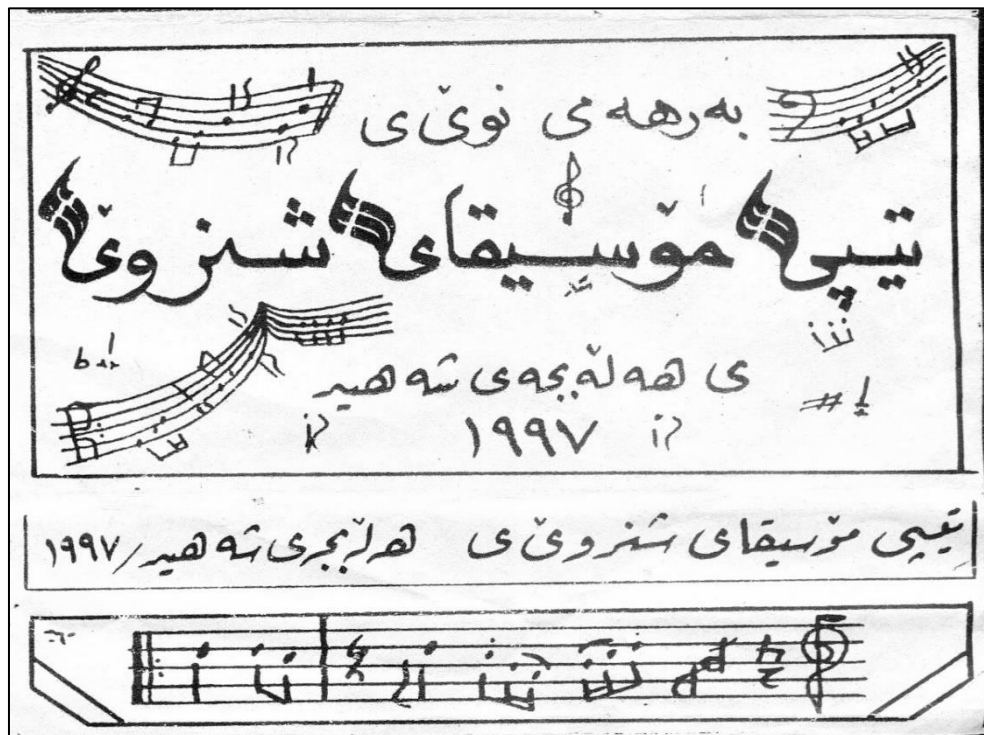 بەرهەمی نوێ ی
تیپی مۆسیقای شنروێ
ی هەڵەبجەی شەهید
١٩٩٧
تیپی مۆسیقای شنروێ ی هەڵەبجەی شەهید/١٩٩٧